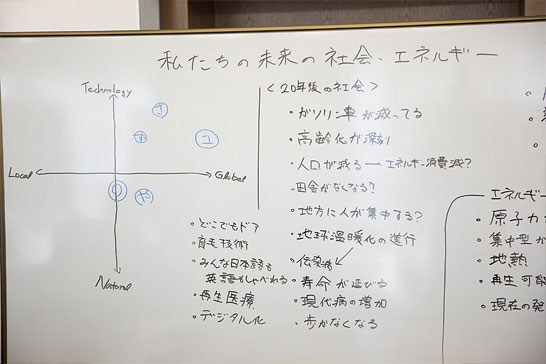 私たちの未来の社会・エネルギー
Technology
Local
Global
Natural
<20年後の社会>
・ガソリン車が減ってる
・高齢化が深刻
・人口が減る→エネルギー消費減?
・田舎がなくなる?
・地方に人が集中する?
・地球温暖化の進行
・伝染病
・寿命が延びる
・現代病の増加
・歩かなくなる
・どこでもドア
・育毛技術
・みんな日本語も
英語もしゃべれる
・再生医療
・デジタル化
エネルギー
・原子力
・集中型か
・地熱
・再生可能
・現在の発